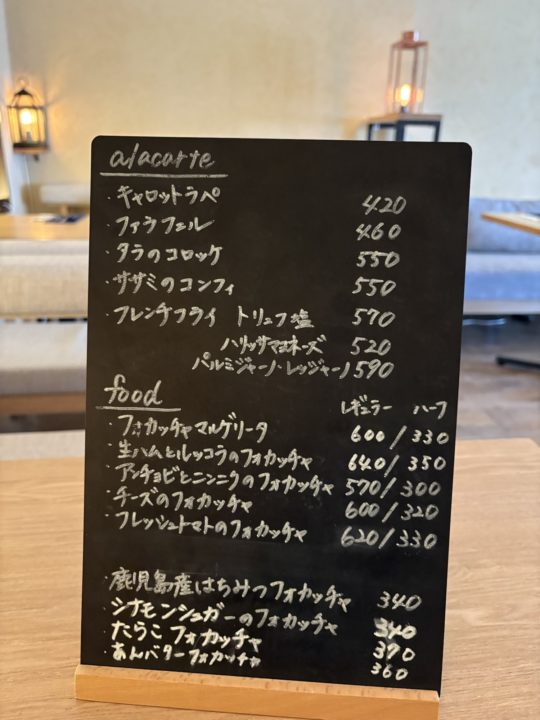 alacarte
・キャロットラペ 420
・ファラフェル 460
・タラのコロッケ 550
・ササミのコンフィ 550
・フレンチフライ トリュフ塩 570
ハリッサマヨネーズ 520
パルミジャーノ・レッジャーノ 590
food レギュラー ハーフ
・フォカッチャマルゲリータ 600/330
・生ハムとルッコラのフォカッチャ 640/350
・アンチョビとニンニクのフォカッチャ 570/300
・チーズのフォカッチャ 600/320
・フレッシュトマトのフォカッチャ 620/330
・鹿児島産はちみつフォカッチャ 340
・シナモンシュガーのフォカッチャ 340
・たらこフォカッチャ 390
・あんバターフォカッチャ 360